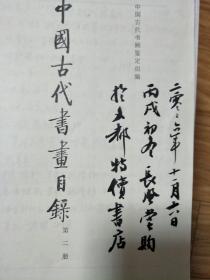 中國古代書畫鑒定組編
中國古代書畫目錄
第二册
二〇〇六年十一月六日
丙戌初冬長風堂購
於文都特價書店